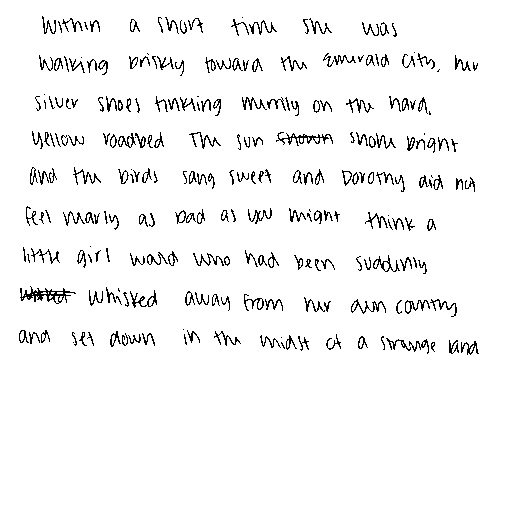 Within a short time she was
walking briskly toward the Emerald City, her
silver shoes tinkling merrily on the hard,
yellow roadbed The sun shone bright
and the birds sang sweet and Dorothy did not
feel nearly as bad as you might think a
little girl would who had been suddenly
whisked away from her own country
and set down in the midst of a strange land